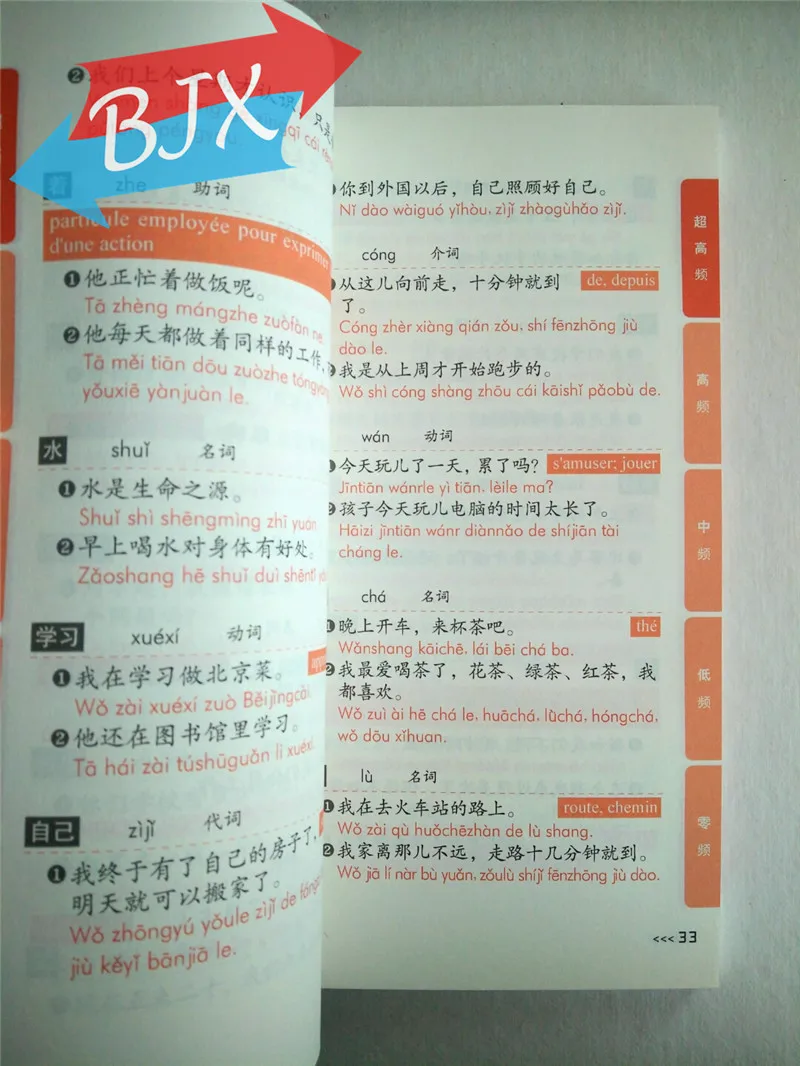 BJX
❷我们上个
认识，只是
着 zhe 助词
particule employée pour exprimer
d'une action
❶他正忙着做饭呢。
Tā zhèng mángzhe zuòfàn ne.
❷他每天都做着同样的工作，
Tā měi tiān dōu zuòzhe tóngyàng
yǒuxiē yànjuàn le.
水 shuǐ 名词
❶水是生命之源。
Shuǐ shì shēngmìng zhī yuán
❷早上喝水对身体有好处。
Zǎoshang hē shuǐ duì shēntǐ
学习 xuéxí 动词
❶我在学习做北京菜。
Wǒ zài xuéxí zuò Běijīngcài.
❷他还在图书馆里学习。
Tā hái zài túshūguǎn li xuéxí.
自己 zìjǐ 代词
❶我终于有了自己的房子了，
明天就可以搬家了。
Wǒ zhōngyú yǒule zìjǐ de
jiù kěyǐ bānjiā le.
你到外国以后，自己照顾好自己。
Nǐ dào wàiguó yǐhòu, zìjǐ zhàogùhǎo zìjǐ.
cóng 介词
❶从这儿向前走，十分钟就到 de, depuis
了。
Cóng zhèr xiàng qián zǒu, shí fēnzhōng jiù
dào le.
❷我是从上周才开始跑步的。
Wǒ shì cóng shàng zhōu cái kāishǐ pǎobù de.
wán 动词
❶今天玩儿了一天，累了吗？ s'amuser; jouer
Jīntiān wánrle yì tiān, lèile ma?
❷孩子今天玩儿电脑的时间太长了。
Háizi jīntiān wánr diànnǎo de shíjiān tài
cháng le.
chá 名词
❶晚上开车，来杯茶吧。 thé
Wǎnshang kāichē, lái bēi chá ba.
❷我最爱喝茶了，花茶、绿茶、红茶，我
都喜欢。
Wǒ zuì ài hē chá le, huāchá, lǜchá, hóngchá,
wǒ dōu xǐhuan.
lù 名词
❶我在去火车站的路上。 route, chemin
Wǒ zài qù huǒchēzhàn de lù shang.
❷我家离那儿不远，走路十几分钟就到。
Wǒ jiā lí nàr bù yuǎn, zǒulù shíjǐ fēnzhōng jiù dào.
超高频
高频
中频
低频
零频
<<< 33